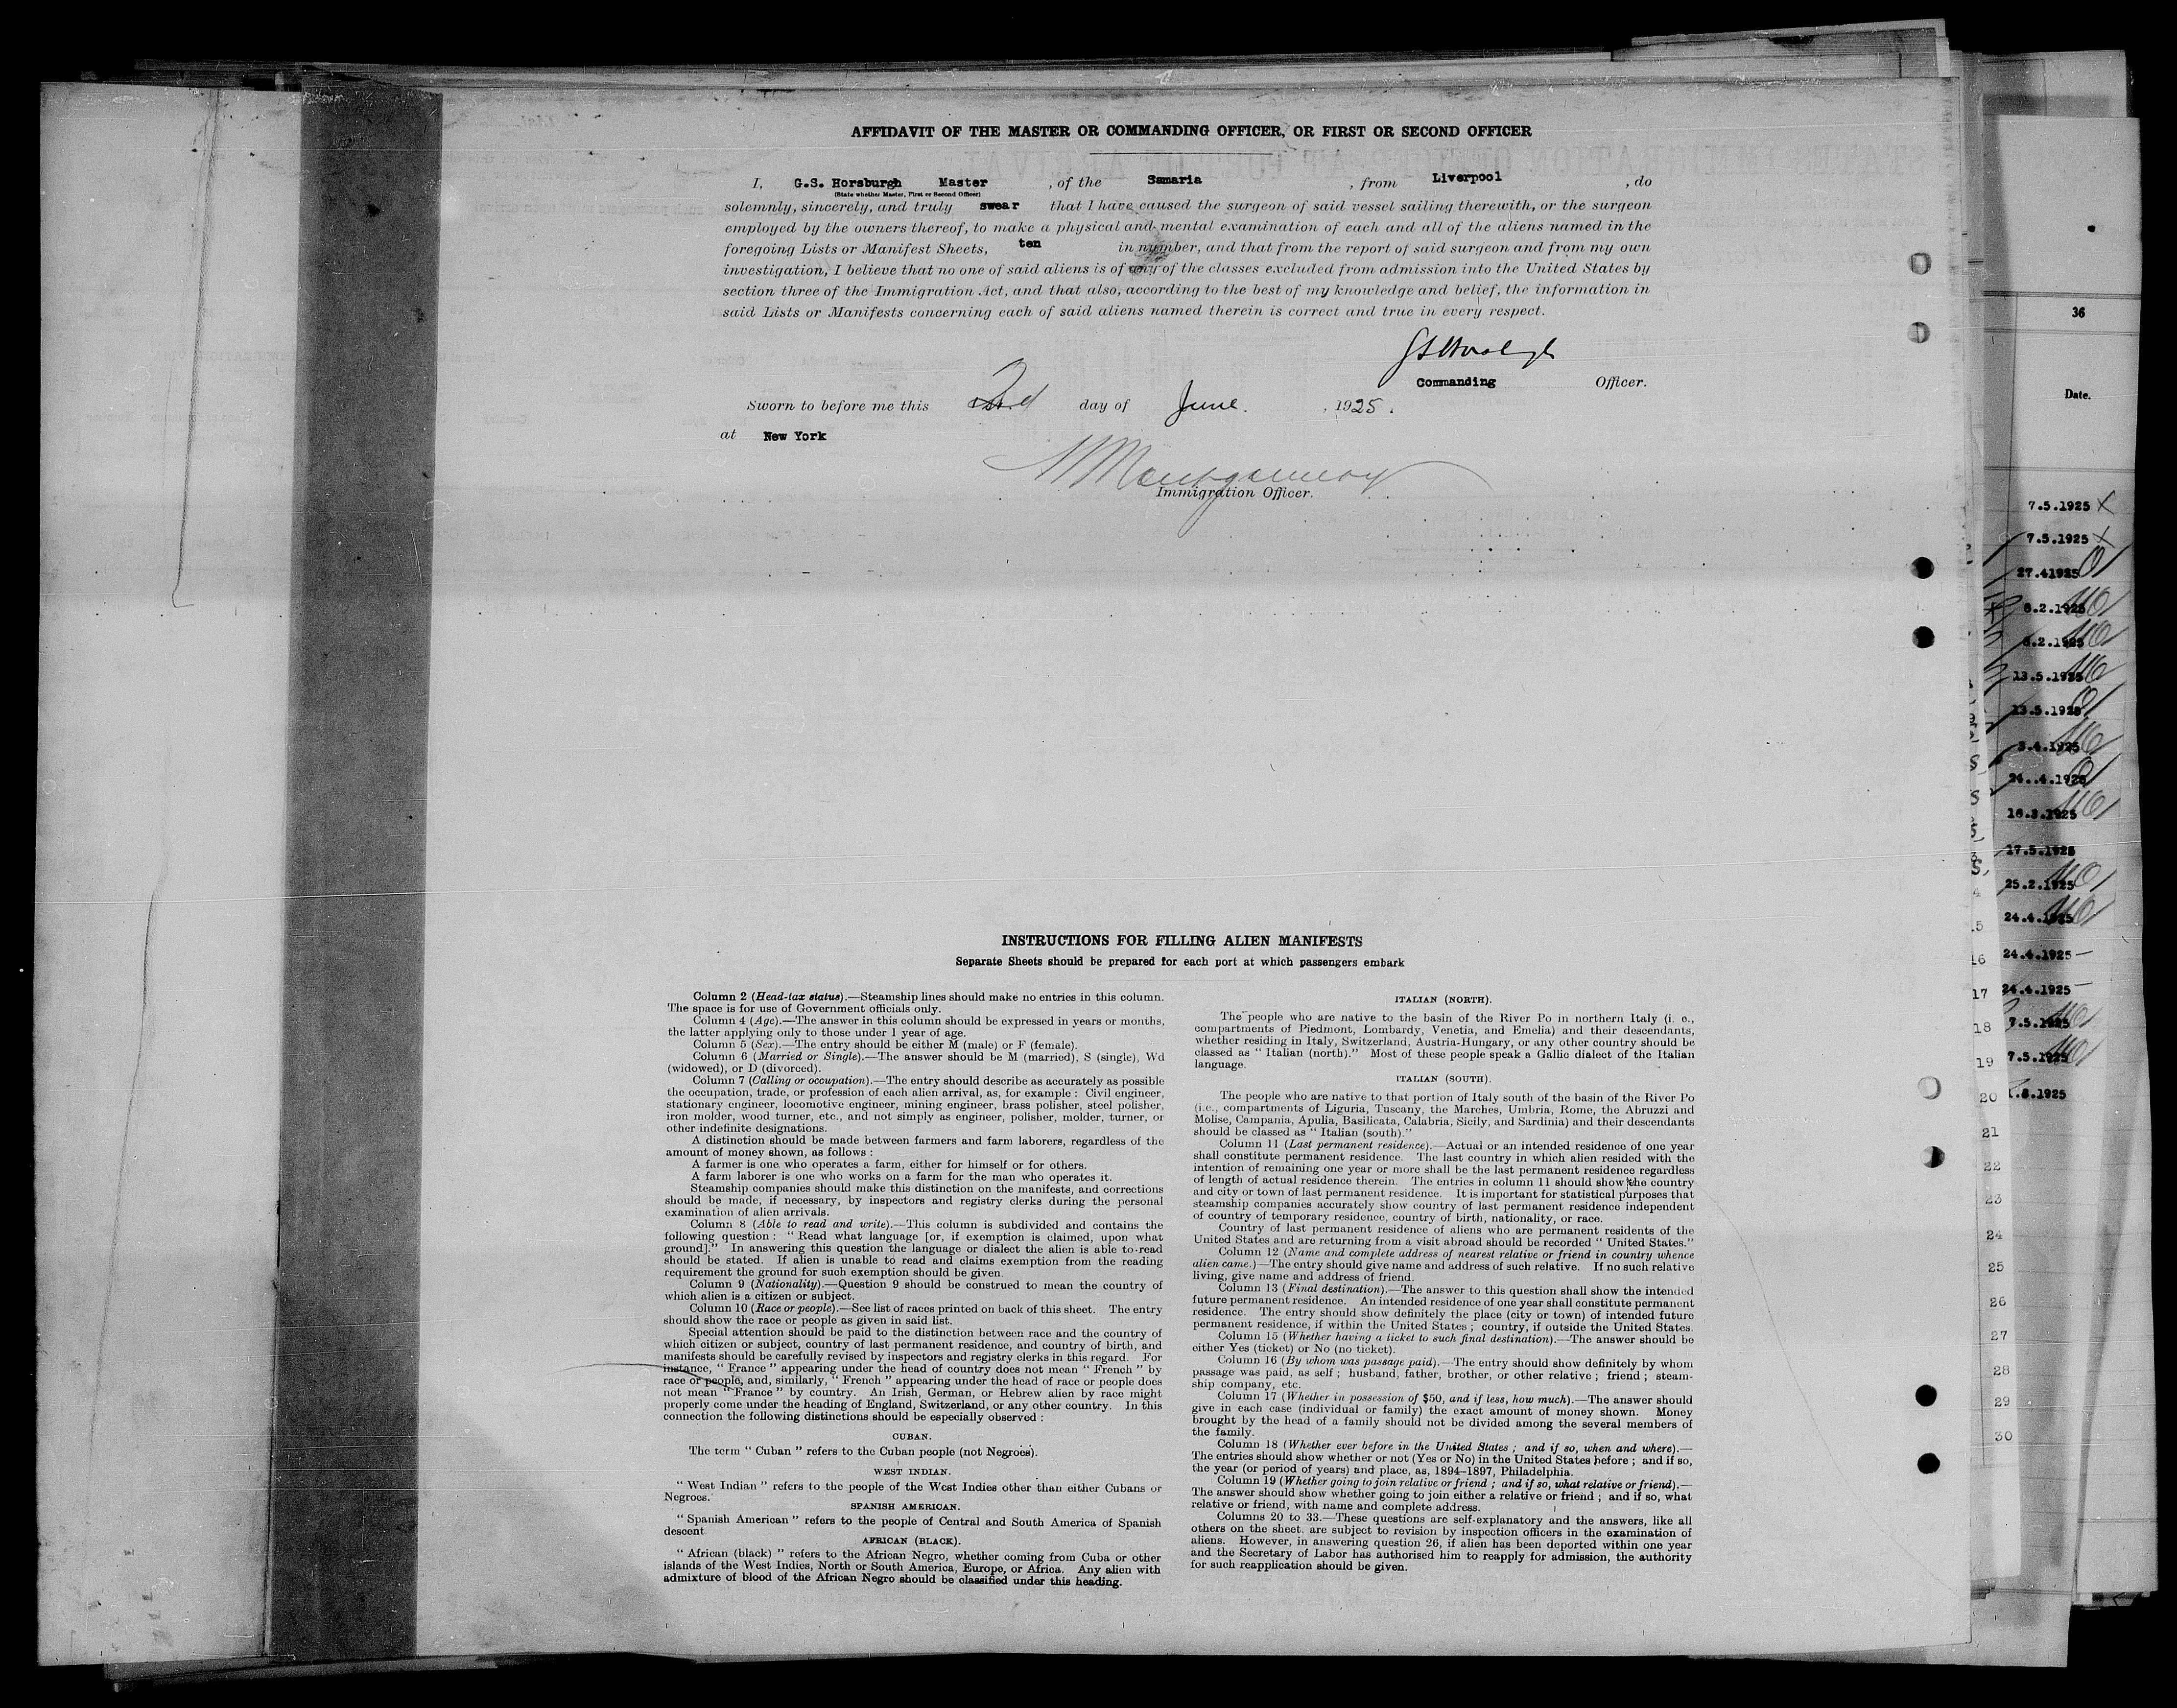 AFFIDAVIT OF THE MASTER OR COMMANDING OFFICER, OR FIRST OR SECOND OFFICER
I, G.S. Horsburgh Master , of the Samaria , from Liverpool , do
(State whether Master, First or Second Officer)
solemnly, sincerely, and truly swear that I have caused the surgeon of said vessel sailing therewith, or the surgeon
employed by the owners thereof, to make a physical and mental examination of each and all of the aliens named in the
foregoing Lists or Manifest Sheets, ten in number, and that from the report of said surgeon and from my own
investigation, I believe that no one of said aliens is of any of the classes excluded from admission into the United States by
section three of the Immigration Act, and that also, according to the best of my knowledge and belief, the information in
said Lists or Manifests concerning each of said aliens named therein is correct and true in every respect.
GSHorsburgh
Commanding Officer.
Sworn to before me this 2nd day of June , 1925.
at New York
Montgomery
Immigration Officer.
INSTRUCTIONS FOR FILLING ALIEN MANIFESTS
Separate Sheets should be prepared for each port at which passengers embark
Column 2 (Head-tax status).—Steamship lines should make no entries in this column.
The space is for use of Government officials only.
Column 4 (Age).—The answer in this column should be expressed in years or months,
the latter applying only to those under 1 year of age.
Column 5 (Sex).—The entry should be either M (male) or F (female).
Column 6 (Married or Single).—The answer should be M (married), S (single), Wd
(widowed), or D (divorced).
Column 7 (Calling or occupation).—The entry should describe as accurately as possible
the occupation, trade, or profession of each alien arrival, as, for example : Civil engineer,
stationary engineer, locomotive engineer, mining engineer, brass polisher, steel polisher,
iron molder, wood turner, etc., and not simply as engineer, polisher, molder, turner, or
other indefinite designations.
A distinction should be made between farmers and farm laborers, regardless of the
amount of money shown, as follows :
A farmer is one who operates a farm, either for himself or for others.
A farm laborer is one who works on a farm for the man who operates it.
Steamship companies should make this distinction on the manifests, and corrections
should be made, if necessary, by inspectors and registry clerks during the personal
examination of alien arrivals.
Column 8 (Able to read and write).—This column is subdivided and contains the
following question : " Read what language [or, if exemption is claimed, upon what
ground]." In answering this question the language or dialect the alien is able to read
should be stated. If alien is unable to read and claims exemption from the reading
requirement the ground for such exemption should be given.
Column 9 (Nationality).—Question 9 should be construed to mean the country of
which alien is a citizen or subject.
Column 10 (Race or people).—See list of races printed on back of this sheet. The entry
should show the race or people as given in said list.
Special attention should be paid to the distinction between race and the country of
which citizen or subject, country of last permanent residence, and country of birth, and
manifests should be carefully revised by inspectors and registry clerks in this regard. For
instance, " France " appearing under the head of country does not mean " French " by
race or people, and, similarly, " French " appearing under the head of race or people does
not mean " France " by country. An Irish, German, or Hebrew alien by race might
properly come under the heading of England, Switzerland, or any other country. In this
connection the following distinctions should be especially observed :
CUBAN.
The term " Cuban " refers to the Cuban people (not Negroes).
WEST INDIAN.
" West Indian " refers to the people of the West Indies other than either Cubans or
Negroes.
SPANISH AMERICAN.
" Spanish American " refers to the people of Central and South America of Spanish
descent
AFRICAN (BLACK).
" African (black) " refers to the African Negro, whether coming from Cuba or other
islands of the West Indies, North or South America, Europe, or Africa. Any alien with
admixture of blood of the African Negro should be classified under this heading.
ITALIAN (NORTH).
The people who are native to the basin of the River Po in northern Italy (i. e.,
compartments of Piedmont, Lombardy, Venetia, and Emelia) and their descendants,
whether residing in Italy, Switzerland, Austria-Hungary, or any other country should be
classed as " Italian (north)." Most of these people speak a Gallic dialect of the Italian
language.
ITALIAN (SOUTH).
The people who are native to that portion of Italy south of the basin of the River Po
(i.e., compartments of Liguria, Tuscany, the Marches, Umbria, Rome, the Abruzzi and
Molise, Campania, Apulia, Basilicata, Calabria, Sicily, and Sardinia) and their descendants
should be classed as " Italian (south)."
Column 11 (Last permanent residence).—Actual or an intended residence of one year
shall constitute permanent residence. The last country in which alien resided with the
intention of remaining one year or more shall be the last permanent residence regardless
of length of actual residence therein. The entries in column 11 should show the country
and city or town of last permanent residence. It is important for statistical purposes that
steamship companies accurately show country of last permanent residence independent
of country of temporary residence, country of birth, nationality, or race.
Country of last permanent residence of aliens who are permanent residents of the
United States and are returning from a visit abroad should be recorded " United States."
Column 12 (Name and complete address of nearest relative or friend in country whence
alien came.)—The entry should give name and address of such relative. If no such relative
living, give name and address of friend.
Column 13 (Final destination).—The answer to this question shall show the intended
future permanent residence. An intended residence of one year shall constitute permanent
residence. The entry should show definitely the place (city or town) of intended future
permanent residence, if within the United States ; country, if outside the United States.
Column 15 (Whether having a ticket to such final destination).—The answer should be
either Yes (ticket) or No (no ticket).
Column 16 (By whom was passage paid).—The entry should show definitely by whom
passage was paid, as self ; husband, father, brother, or other relative ; friend ; steam-
ship company, etc.
Column 17 (Whether in possession of $50, and if less, how much).—The answer should
give in each case (individual or family) the exact amount of money shown. Money
brought by the head of a family should not be divided among the several members of
the family.
Column 18 (Whether ever before in the United States ; and if so, when and where).—
The entries should show whether or not (Yes or No) in the United States before ; and if so,
the year (or period of years) and place, as, 1894–1897, Philadelphia.
Column 19 (Whether going to join relative or friend ; and if so, what relative or friend).—
The answer should show whether going to join either a relative or friend ; and if so, what
relative or friend, with name and complete address.
Columns 20 to 33.—These questions are self-explanatory and the answers, like all
others on the sheet. are subject to revision by inspection officers in the examination of
aliens. However, in answering question 26, if alien has been deported within one year
and the Secretary of Labor has authorised him to reapply for admission, the authority
for such reapplication should be given.
36
Date.
7.5.1925
7.5.1925
27.41925
6.2.1925
6.2.1925
13.5.1925
13.5.1925
3.4.1925
24..4.1925
16.3.1925
17.5.1925
25.2.1925
24.4.1925
16 24.4.1925
17 24.4.1925
18 7.5.1925
19 7.5.1925
20
21
22
23
24
25
26
27
28
29
30